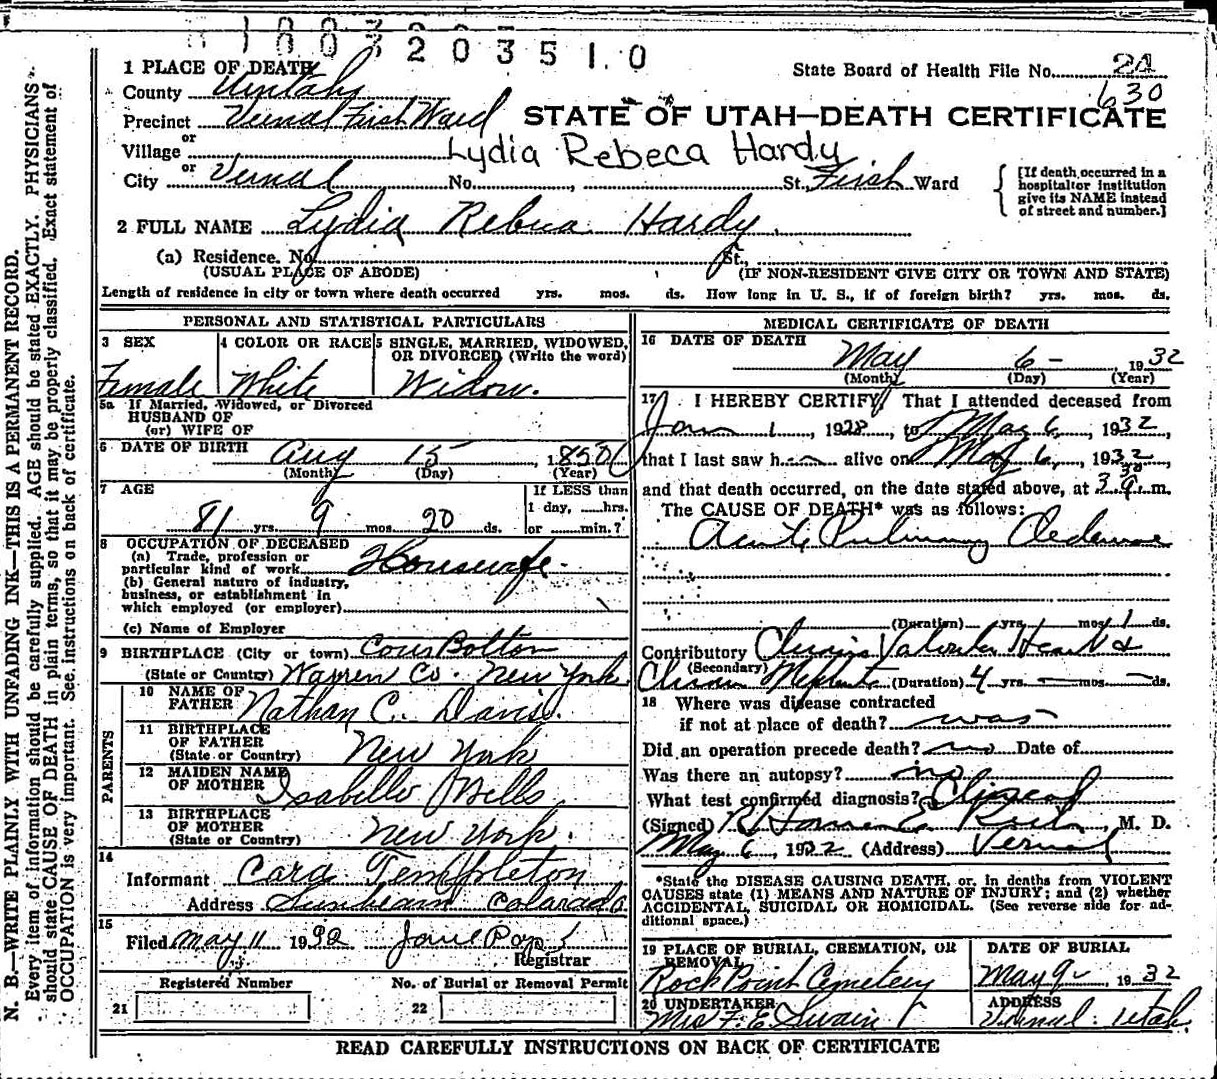 203510
1 PLACE OF DEATH
State Board of Health File No. 24
630
County Uintah
Precinct Vernal First Ward
STATE OF UTAH—DEATH CERTIFICATE
or
Village
Lydia Rebeca Hardy
or
City Vernal No. , St. First Ward
[If death occurred in a hospital or institution give its NAME instead of street and number.]
2 FULL NAME Lydia Rebeca Hardy
(a) Residence. No. St.,
(USUAL PLACE OF ABODE) (IF NON-RESIDENT GIVE CITY OR TOWN AND STATE)
Length of residence in city or town where death occurred yrs. mos. ds. How long in U. S., if of foreign birth? yrs. mos. ds.
PERSONAL AND STATISTICAL PARTICULARS
3 SEX
Female
4 COLOR OR RACE
White
5 SINGLE, MARRIED, WIDOWED, OR DIVORCED (Write the word)
Widow.
5a If Married, Widowed, or Divorced
HUSBAND OF
(or) WIFE OF
6 DATE OF BIRTH Aug 15, 1850
(Month) (Day) (Year)
7 AGE
81 yrs. 9 mos. 20 ds.
If LESS than
1 day, hrs.
or min.?
8 OCCUPATION OF DECEASED
(a) Trade, profession or
particular kind of work Housewife.
(b) General nature of industry,
business, or establishment in
which employed (or employer)
(c) Name of Employer
9 BIRTHPLACE (City or town) Bolton
(State or Country) Warren Co. New York
PARENTS
10 NAME OF FATHER Nathan C. Davis.
11 BIRTHPLACE OF FATHER (State or Country) New York
12 MAIDEN NAME OF MOTHER Isabelle Mells
13 BIRTHPLACE OF MOTHER (State or Country) New York.
14
Informant Cora Templeton
Address Sunbeam Colorado
15
Filed May 11 1932
Registrar
Registered Number No. of Burial or Removal Permit
21 22
MEDICAL CERTIFICATE OF DEATH
16 DATE OF DEATH
May 6- 1932
(Month) (Day) (Year)
17 I HEREBY CERTIFY, That I attended deceased from
Jan 1, 1928, to May 6, 1932,
that I last saw her alive on May 6, 1932,
and that death occurred, on the date stated above, at 3 30 a. m.
The CAUSE OF DEATH* was as follows:
Acute Pulmonary Oedema
(Duration) yrs. mos. 1 ds.
Contributory Chronic Valvular Heart &
(Secondary)
Chronic Nephritis (Duration) 4 yrs. — mos. — ds.
18 Where was disease contracted
if not at place of death? was
Did an operation precede death? no Date of
Was there an autopsy? no
What test confirmed diagnosis? Clinical
(Signed) M. D.
May 6, 1932 (Address) Vernal
*State the DISEASE CAUSING DEATH, or, in deaths from VIOLENT
CAUSES state (1) MEANS AND NATURE OF INJURY; and (2) whether
ACCIDENTAL, SUICIDAL OR HOMICIDAL. (See reverse side for ad-
ditional space.)
19 PLACE OF BURIAL, CREMATION, OR REMOVAL
Rock Point Cemetery
DATE OF BURIAL
May 9- 1932
20 UNDERTAKER
Mrs F. E. Swain
ADDRESS
Vernal. Utah.
READ CAREFULLY INSTRUCTIONS ON BACK OF CERTIFICATE
N. B.—WRITE PLAINLY WITH UNFADING INK—THIS IS A PERMANENT RECORD.
Every item of information should be carefully supplied. AGE should be stated EXACTLY. PHYSICIANS
should state CAUSE OF DEATH in plain terms, so that it may be properly classified. Exact statement of
OCCUPATION is very important. See instructions on back of certificate.